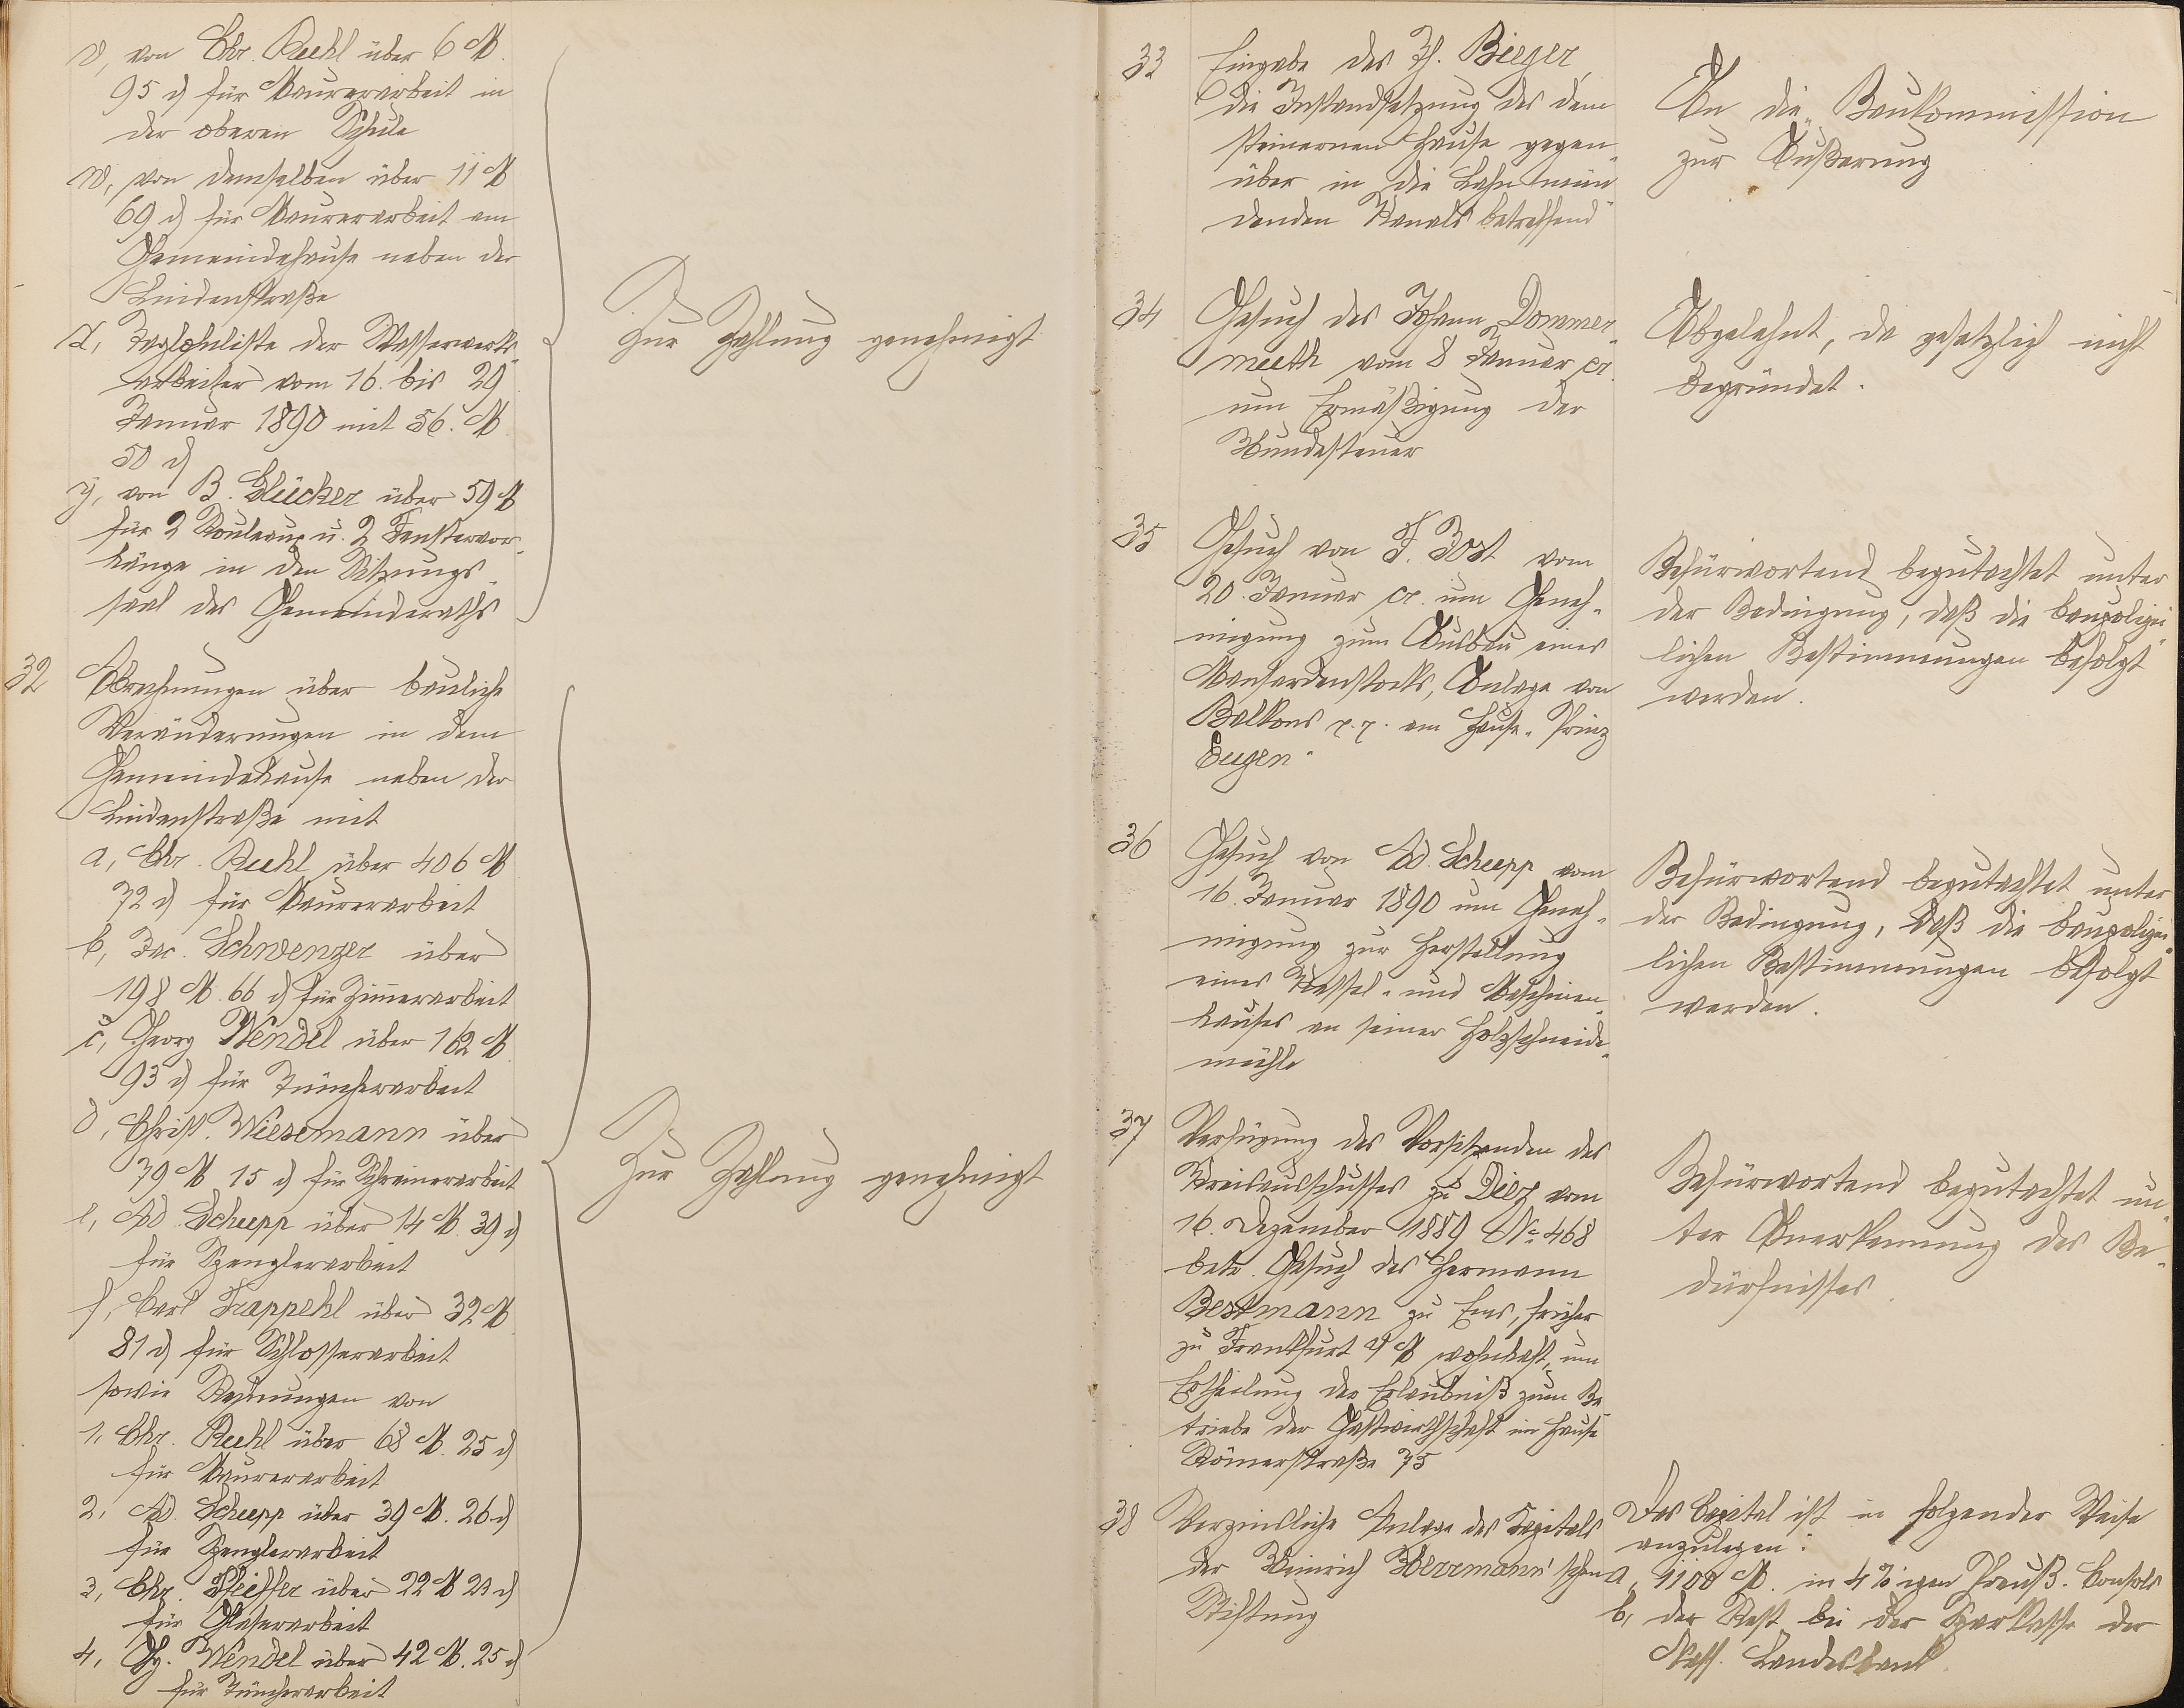 v, von Chr. Ruhl über 6 M.
95 ₰ für Maurerarbeit in
der oberen Schule
w, von demselben über 11 M
69 ₰ für Maurerarbeit am
Gemeindehause neben der
Lindenstraße
x, Taglohnliste der Wasserwerks-
arbeiter vom 16. bis 29
Januar 1890 mit 56. M
50 ₰
y, von B. Glücker über 59 M
für 2 Rouleaux u. 2 Fenstervor-
hänge in den Sitzungs-
saal des Gemeinderaths
Zur Zahlung genehmigt
32 Abrechnungen über bauliche
Veränderungen in dem
Gemeindehause neben der
Lindenstraße mit
a, Chr. Ruhl über 406 M
72 ₰ für Maurerarbeit
b, Jac. Schwenzer über
198 M. 66 ₰ für Zimmerarbeit
c, Georg Wendel über 162 M
93 ₰ für Tüncherarbeit
d, Christ. Wiesemann über
79 M 15 ₰ für Schreinerarbeit
e, Ad. Schupp über 14 M. 39 ₰
für Spenglerarbeit
f, Carl Trappehl über 32 M
81 ₰ für Schlosserarbeit
sowie Rechnungen von
1, Chr. Ruhl über 68 M. 25 ₰
für Maurerarbeit
2, Ad. Schupp über 39 M. 26 ₰
für Spenglerarbeit
3, Chr. Pfeiffer über 22 M 23 ₰
für Glaserarbeit
4, Gg. Wendel über 42 M. 25 ₰
für Tüncherarbeit
Zur Zahlung genehmigt
33 Eingabe des Th. Bieger,
die Instandsetzung des dem
steinernen Hause gegen-
über in die Lahn mün-
denden Kanals betreffend
An die Baukommission
zur Äußerung
34 Gesuch des Johann Dommer-
muth vom 8 Januar cr.
um Ermäßigung der
Hundesteuer
Abgelehnt, da gesetzlich nicht
begründet.
35 Gesuch von F. Jost vom
20. Januar cr. um Geneh-
migung zum Ausbau eines
Mansardenstocks, Anlage von
Balkons p.p. am Hause „Prinz
Eugen"
Befürwortend begutachtet unter
der Bedingung, daß die baupolizei-
lichen Bestimmungen befolgt
werden.
36 Gesuch von Ad. Schupp vom
16. Januar 1890 um Geneh-
migung zur Herstellung
eines Kessel- und Maschinen-
hauses an seiner Holzschneide-
mühle
Befürwortend begutachtet unter
der Bedingung, daß die baupolizei-
lichen Bestimmungen befolgt
werden.
37 Verfügung des Vorsitzenden des
Kreisausschusses zu Diez vom
16. Dezember 1889 No 468
betr. Gesuch des Hermann
Bestmann zu Ems, früher
zu Frankfurt a/M wohnhaft, um
Ertheilung der Erlaubniß zum Be-
triebe der Gastwirthschaft im Hause
Römerstraße 75
Befürwortend begutachtet un-
ter Anerkennung des Be-
dürfnisses.
38 Verzinsliche Anlage des Kapitals
der Heinrich Herrmann'schen
Stiftung
Das Capital ist in folgender Weise
anzulegen:
a, 1100 M. in 4%igen Preuß. Consols
b, der Rest bei der Sparkasse der
Nass. Landesbank.